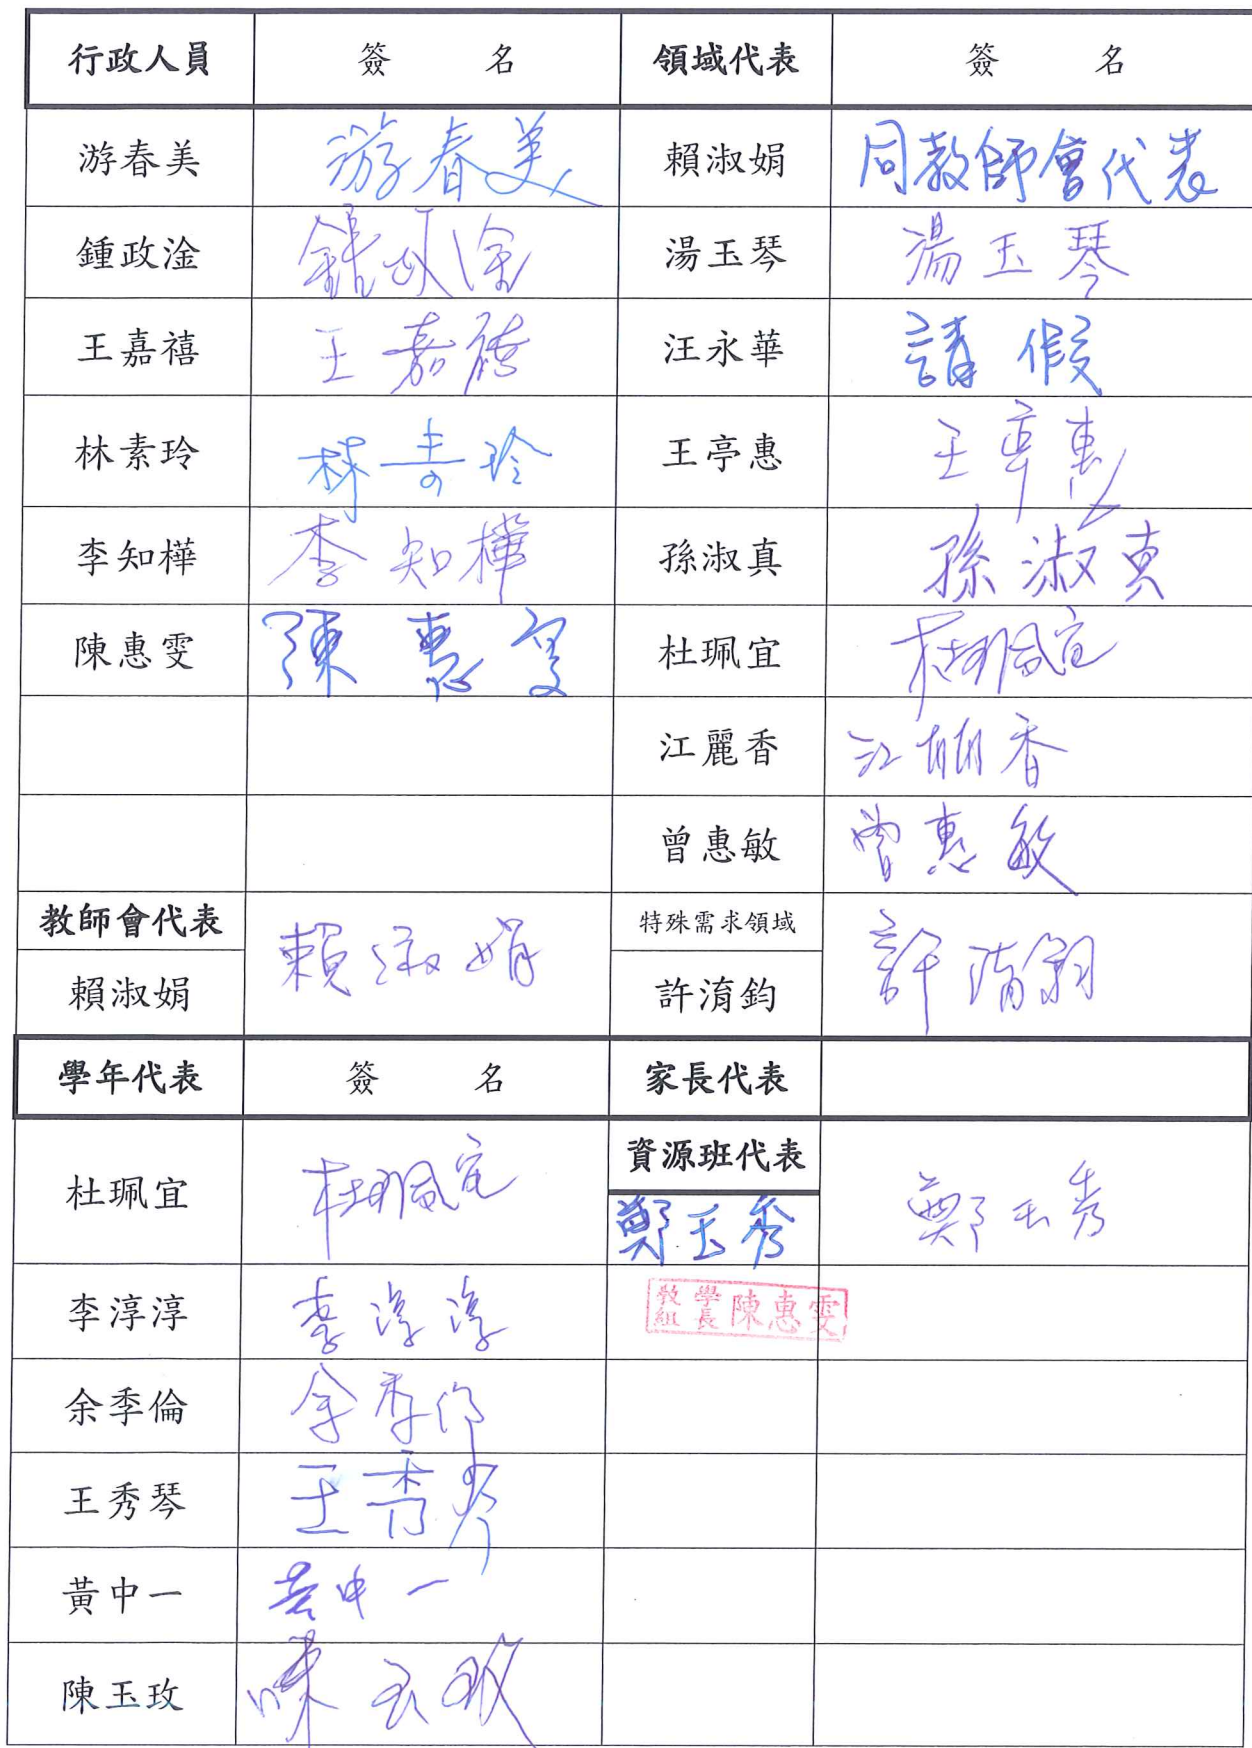 行政人員 簽 名 領域代表 簽 名
游春美 游春美 賴淑娟 同教師會代表
鍾政淦 鍾政淦 湯玉琴 湯玉琴
王嘉禧 王嘉禧 汪永華 請假
林素玲 林素玲 王亭惠 王亭惠
李知樺 李知樺 孫淑真 孫淑真
陳惠雯 陳惠雯 杜珮宜 杜珮宜
江麗香 江麗香
曾惠敏 曾惠敏
教師會代表 賴淑娟 特殊需求領域 許淯鈞
賴淑娟 許淯鈞
學年代表 簽 名 家長代表
資源班代表
杜珮宜 杜珮宜 鄭玉秀 鄭玉秀
李淳淳 李淳淳 教學組長 陳惠雯
余季倫 余季倫
王秀琴 王秀琴
黃中一 黃中一
陳玉玫 陳玉玫